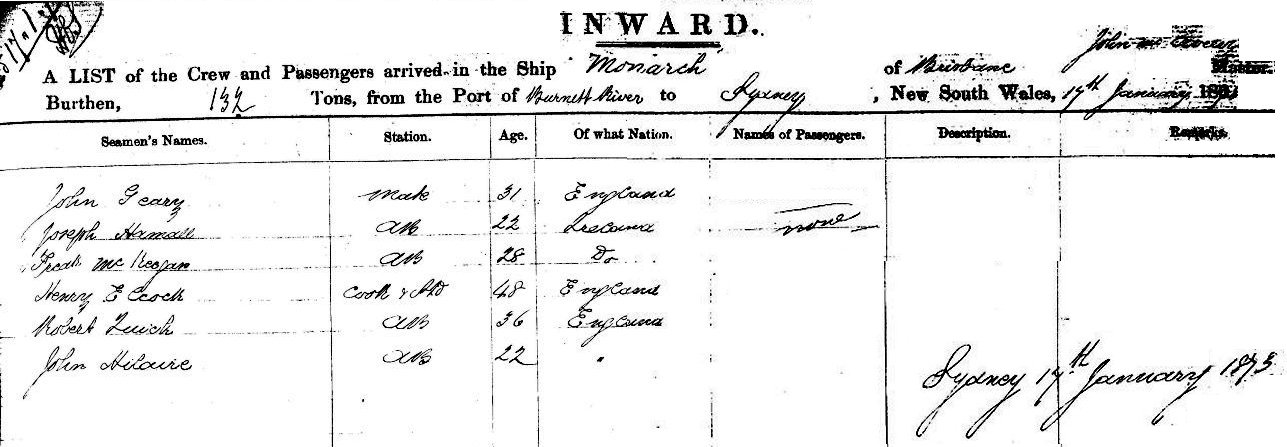 17.1.
INWARD.
A LIST of the Crew and Passengers arrived in the Ship Monarch of Brisbane John Mc Master.
Burthen, 132 Tons, from the Port of Burnett River to Sydney, New South Wales, 17th January 187
Seamen's Names. Station. Age. Of what Nation. Names of Passengers. Description. Remarks.
John Geary Mate 31 England
Joseph AB 22 Ireland none
Mc Keegan AB 28 Do
Henry E Cook & Std 48 England
Robert AB 36 England
John Hilaire AB 22 "
Sydney 17th January 1873